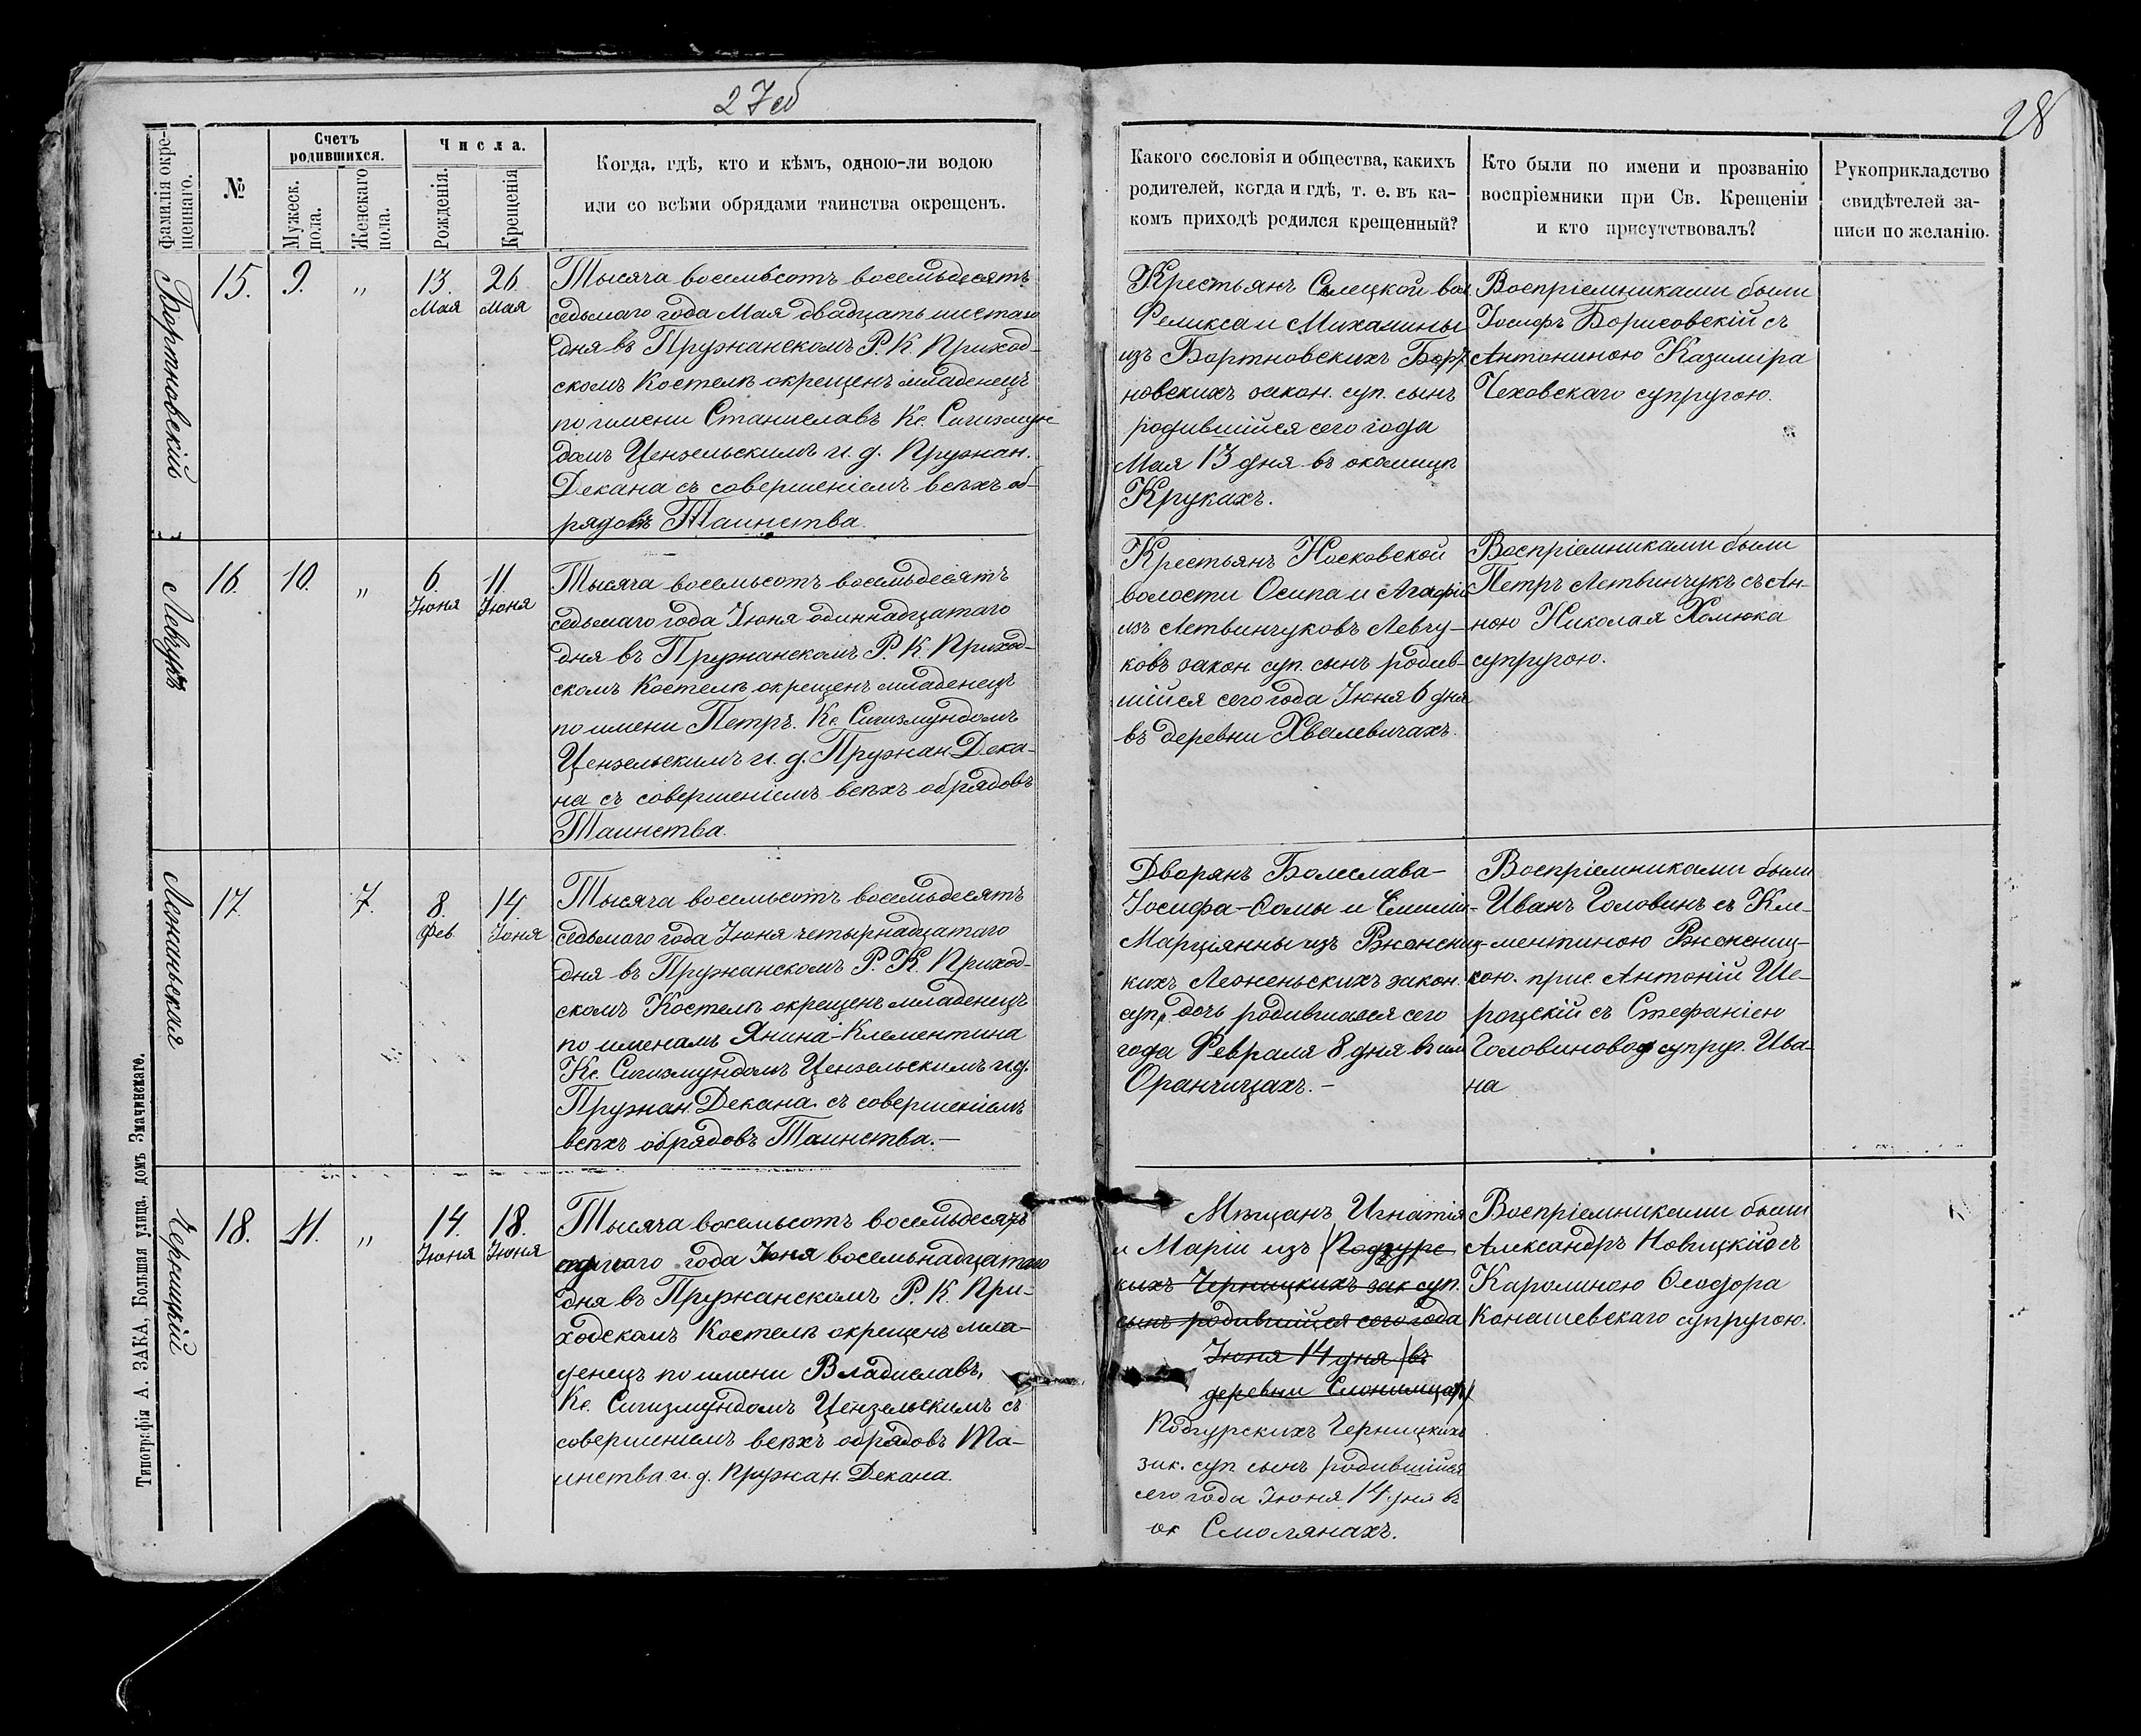 27об
28
Фамилія окре-
щеннаго.
№
Счетъ
родившихся.
Мужеск.
пола.
Женскаго
пола.
Числа.
Рожденія.
Крещенія
Когда, гдѣ, кто и кѣмъ, одною-ли водою
или со всѣми обрядами таинства окрещенъ.
Какого сословія и общества, какихъ
родителей, когда и гдѣ, т. е. въ ка-
комъ приходѣ родился крещенный?
Кто были по имени и прозванію
воспріемники при Св. Крещеніи
и кто присутствовалъ?
Рукоприкладство
свидѣтелей за-
писи по желанію.
Бортновскій
15.
9.
„
13.
Мая
26.
Мая
Тысяча восемьсотъ восемьдесятъ
седьмаго года Мая двадцать шестаго
дня въ Пружанскомъ Р. К. Приход-
скомъ Костелѣ окрещенъ младенецъ
по имени Станиславъ Кс. Сигизмун-
домъ Цензельскимъ и. д. Пружан.
Декана съ совершеніемъ всѣхъ об-
рядовъ Таинства.
Крестьянъ Селецкой вол
Феликса и Михалины
изъ Бортновскихъ Борт
новскихъ закон. суп. сынъ
родившійся сего года
Мая 13 дня въ околицѣ
Крукахъ.
Воспріемниками были
Іосифъ Борисовскій съ
Антониною Казиміра
Чеховскаго супругою.
Левчукъ
16.
10.
„
6.
Іюня
11.
Іюня
Тысяча восемьсотъ восемьдесятъ
седьмаго года Іюня одиннадцатаго
дня въ Пружанскомъ Р. К. Приход-
скомъ Костелѣ окрещенъ младенецъ
по имени Петръ. Кс. Сигизмундомъ
Цензельскимъ и. д. Пружан. Дека-
на съ совершеніемъ всѣхъ обрядовъ
Таинства.
Крестьянъ Носковской
волости Осипа и Агафіи
изъ Летвинчуковъ Левчу-
ковъ закон. суп. сынъ родив-
шійся сего года Іюня 6 дня
въ деревни Хвалевичахъ.
Воспріемниками были
Петръ Летвинчукъ съ Ан-
ною Николая Хомюка
супругою.
Лежаньская
17.
7.
8.
Фев.
14.
Іюня
Тысяча восемьсотъ восемьдесятъ
седьмаго года Іюня четырнадцатаго
дня въ Пружанскомъ Р. К. Приход-
скомъ Костелѣ окрещенъ младенецъ
по именамъ Янина-Клементина
Кс. Сигизмундомъ Цензельскимъ и.д.
Пружан. Декана съ совершеніемъ
всѣхъ обрядовъ Таинства.-
Дворянъ Болеслава-
Іосифа-Ѳомы и Емиліи-
Марціянны изъ Рженсниц-
кихъ Леженьскихъ закон.
суп. дочь родившаяся сего
года Февраля 8 дня въ им
Оранчицахъ.-
Воспріемниками были
Иванъ Головинъ съ Кле-
ментиною Рженсниц-
кою. прис. Антоній Ше-
роцкій съ Стефаніею
Головиновой супруг. Ива-
на
Черницкій
18.
11.
„
14.
Іюня
18.
Іюня
Тысяча восемьсотъ восемьдесятъ
седьмаго года Іюня восемьнадцатаго
дня въ Пружанскомъ Р. К. При-
ходскомъ Костелѣ окрещенъ мла-
денецъ по имени Владиславъ,
Кс. Сигизмундомъ Цензельскимъ съ
совершеніемъ всѣхъ обрядовъ Та-
инства и. д. Пружан. Декана.
Мѣщанъ Игнатія
и Маріи изъ Подгурс
кихъ Черницкихъ зак суп.
сынъ родившійся сего года
Іюня 14 дня въ
деревни
Подгурскихъ Черницкихъ
зак. суп сынъ родившійся
сего года Іюня 14 дня въ
ок Смолянахъ.
Воспріемниками были
Александръ Новицкій съ
Каролиною Ѳеодора
Конашевскаго супругою.
Типографія А. ЗАКА, Большая улица, домъ Значинскаго.